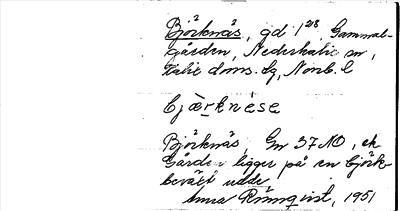 Björknäs, gd 1²¹⁸ Gammal-
gården, Nederkalix sn,
Kalix doms. sg, Norrb. l
bjæ̀rknèse
Björknäs, Gm 37 NO, ek
Gården ligger på en björk-
beväxt udde
Anna Rönnqvist, 1951